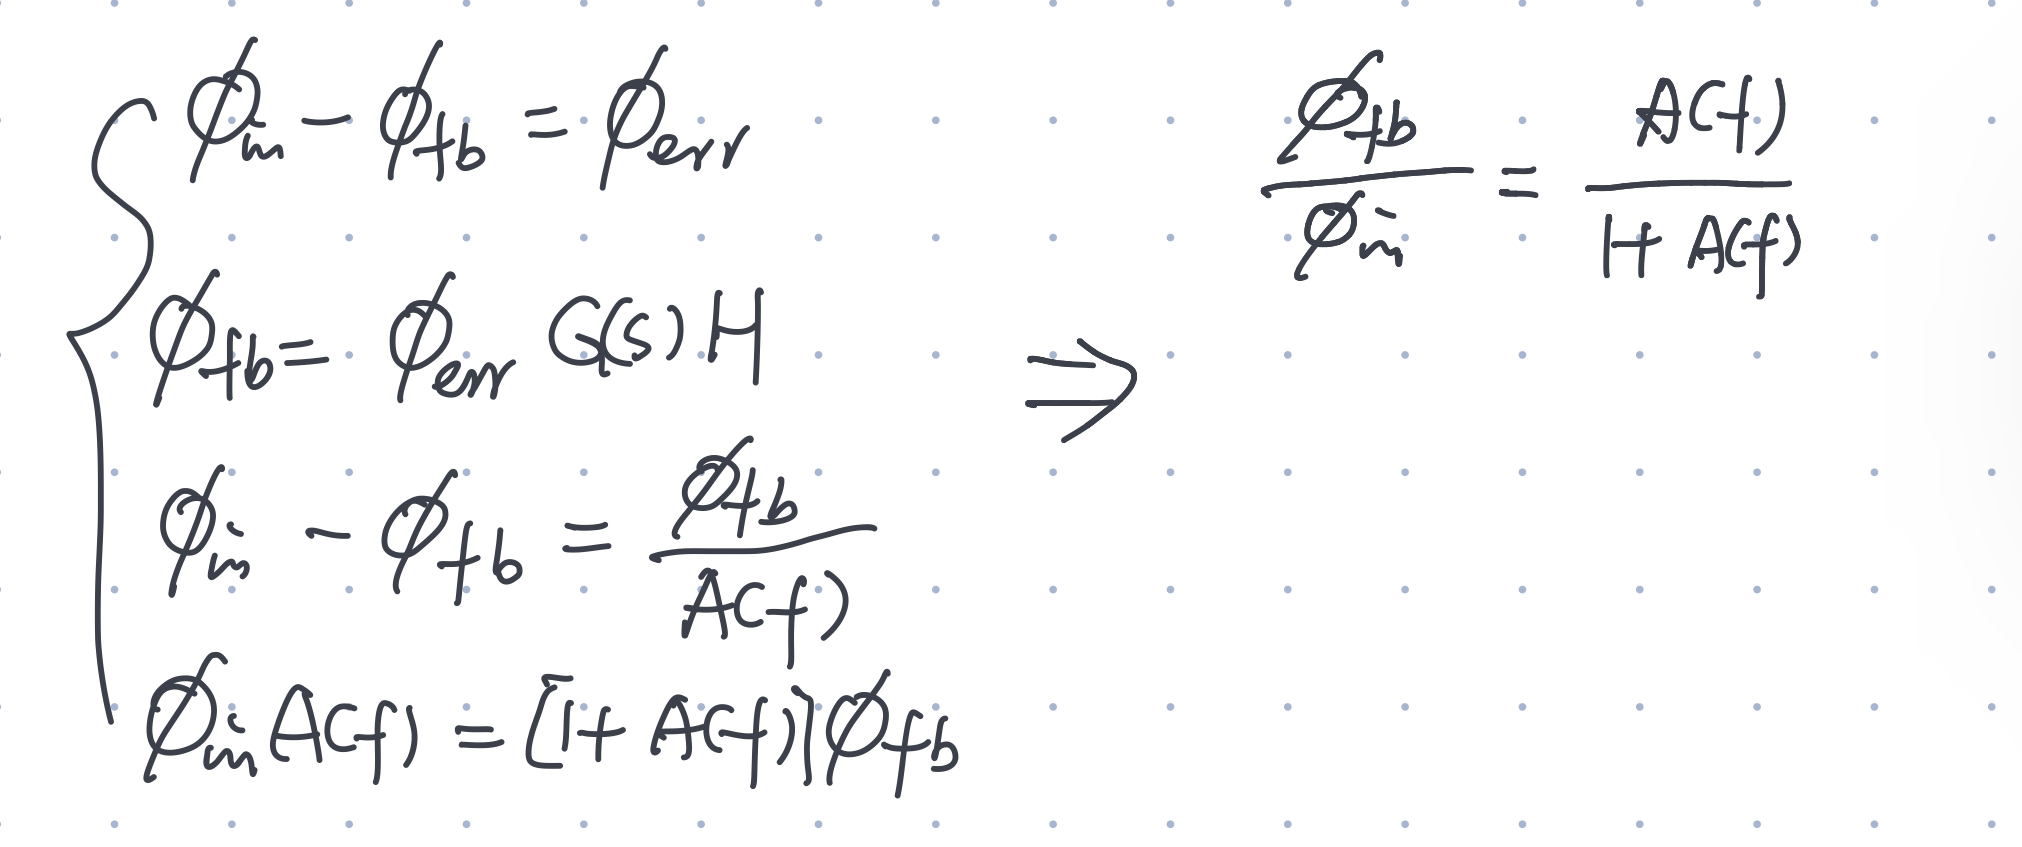 ϕin - ϕfb = ϕerr
ϕfb = ϕerr G(s) H
ϕin - ϕfb = ϕfb / A(f)
ϕin A(f) = [1 + A(f)] ϕfb
⇒
ϕfb / ϕin = A(f) / 1 + A(f)